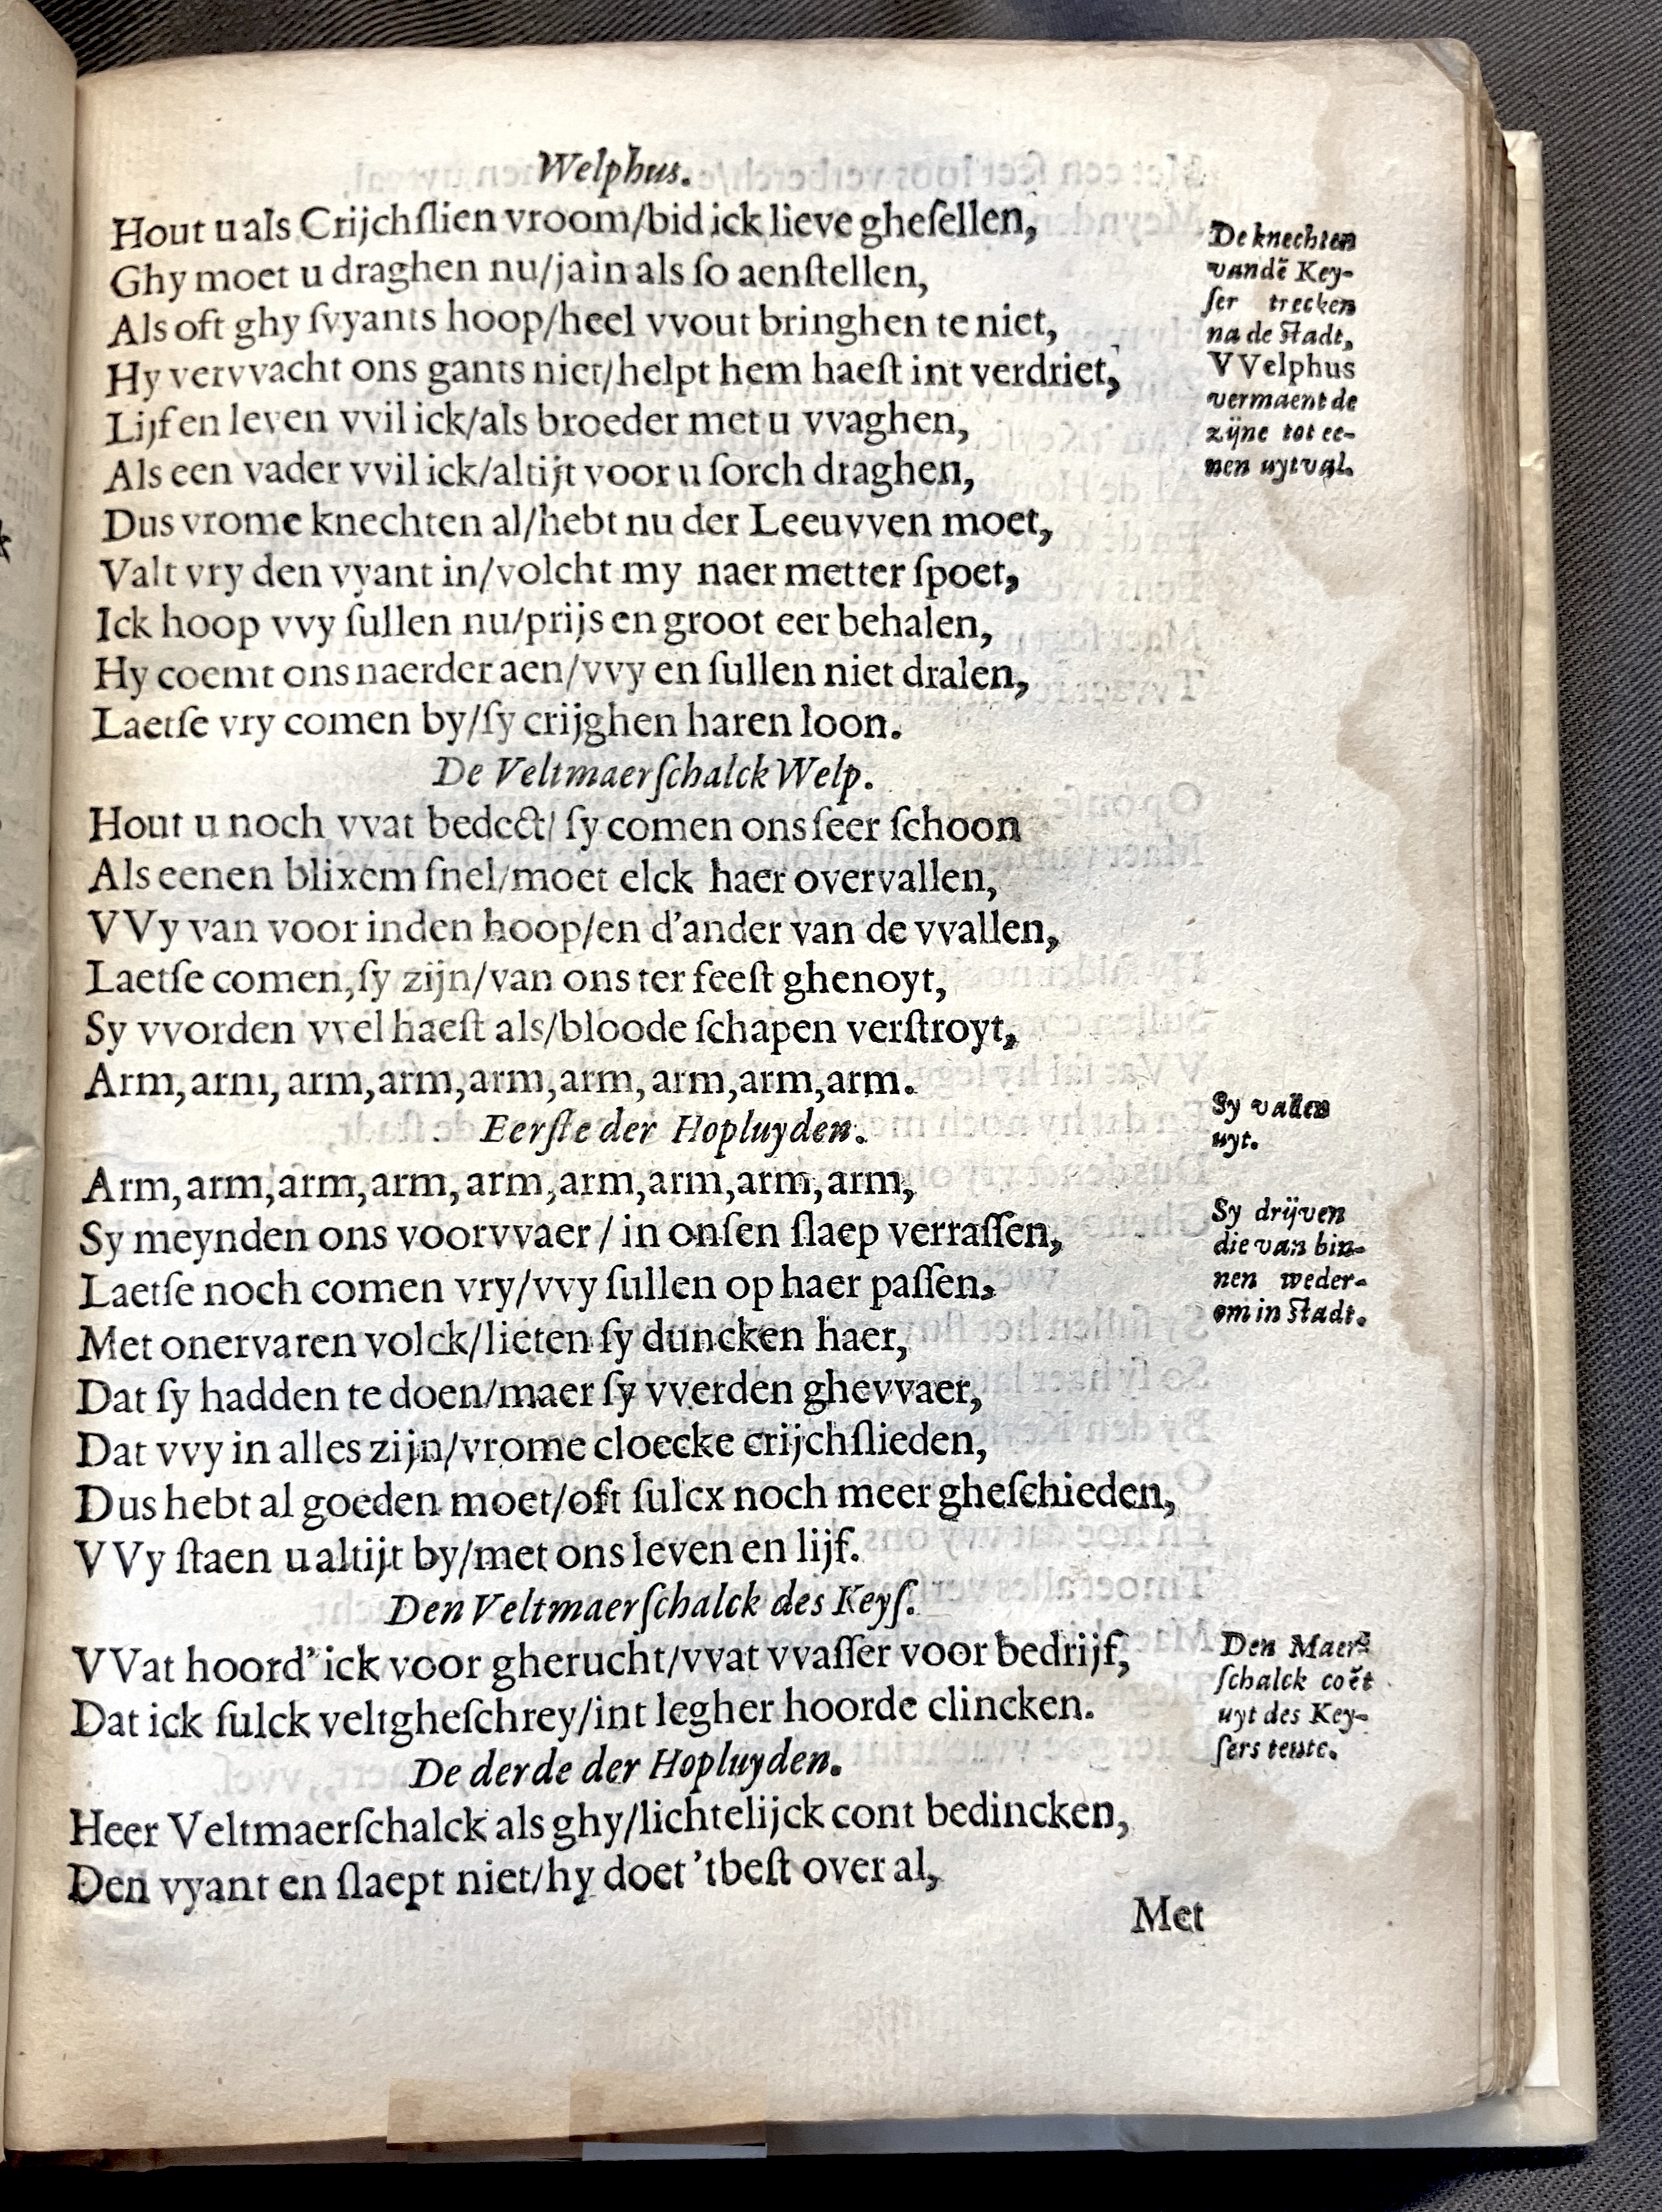 Welphus.
Hout u als Crijchſlien vroom/bid ick lieve gheſellen,
Ghy moet u draghen nu/ja in als ſo aenſtellen,
Als oft ghy ſvyants hoop/heel vvout bringhen te niet,
Hy vervvacht ons gants niet/helpt hem haeſt int verdriet,
Lijf en leven vvil ick/als broeder met u vvaghen,
Als een vader vvil ick/altijt voor u ſorch draghen,
Dus vrome knechten al/hebt nu der Leeuvven moet,
Valt vry den vyant in/volcht my naer metter ſpoet,
Ick hoop vvy ſullen nu/prijs en groot eer behalen,
Hy coemt ons naerder aen/vvy en ſullen niet dralen,
Laetſe vry comen by/ſy crijghen haren loon.
De knechten
vandẽ Key-
ſer trecken
na de Stadt,
VVelphus
vermaent de
zijne tot ee-
nen uytval.
De Veltmaerſchalck Welp.
Hout u noch vvat bedect/ ſy comen ons ſeer ſchoon
Als eenen blixem ſnel/moet elck haer overvallen,
VVy van voor inden hoop/en d'ander van de vvallen,
Laetſe comen, ſy zijn/van ons ter feeſt ghenoyt,
Sy vvorden vvel haeſt als/bloode ſchapen verſtroyt,
Arm, arm, arm, arm, arm, arm, arm, arm, arm.
Sy vallen
uyt.
Eerſte der Hopluyden.
Arm, arm, arm, arm, arm, arm, arm, arm, arm,
Sy meynden ons voorvvaer / in onſen ſlaep verraſſen,
Laetſe noch comen vry/vvy ſullen op haer paſſen,
Met onervaren volck/lieten ſy duncken haer,
Dat ſy hadden te doen/maer ſy vverden ghevvaer,
Dat vvy in alles zijn/vrome cloecke crijchſlieden,
Dus hebt al goeden moet/oft ſulcx noch meer gheſchieden,
VVy ſtaen u altijt by/met ons leven en lijf.
Sy drijven
die van bin-
nen weder-
om in Stadt.
Den Veltmaerſchalck des Keyſ.
VVat hoord' ick voor gherucht/vvat vvaſſer voor bedrijf,
Dat ick ſulck veltgheſchrey/int legher hoorde clincken.
Den Maer-
ſchalck coẽt
uyt des Key-
ſers tente.
De derde der Hopluyden.
Heer Veltmaerſchalck als ghy/lichtelijck cont bedincken,
Den vyant en ſlaept niet/hy doet 'tbeſt over al,
Met